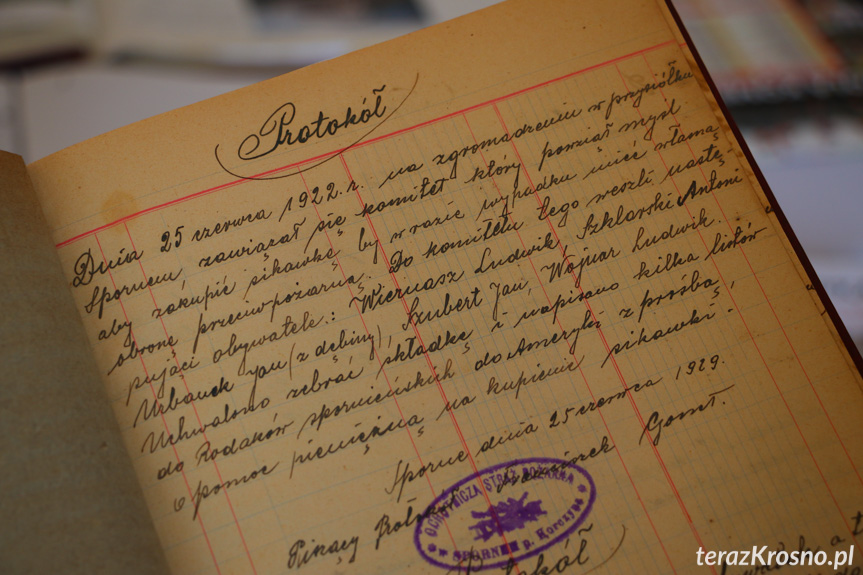 Protokół
Dnia 25 czerwca 1922.r. na zgromadzeniu w przysiółku
Spornem zawiązał się komitet który powziął myśl
aby zakupić sikawkę by w razie wypadku mieć własną
obronę przeciwpożarną. Do komitetu tego weszli nastę-
pujący obywatele: Wiernasz Ludwik, Szklarski Antoni
Urbanek Jan (z dębiny), Szubert Jan, Wojnar Ludwik.
Uchwalono zebrać składkę i napisano kilka listów
do Rodaków sporneńskich do Ameryki z prośbą,
o pomoc pieniężną na kupienie sikawki.
Sporne dnia 25 czerwca 1929.
Pisący Protokół Gonet.
OCHOTNICZA STRAŻ POŻARNA
w SPORNEM p. Korczyna
Protokół
terazKrosno.pl